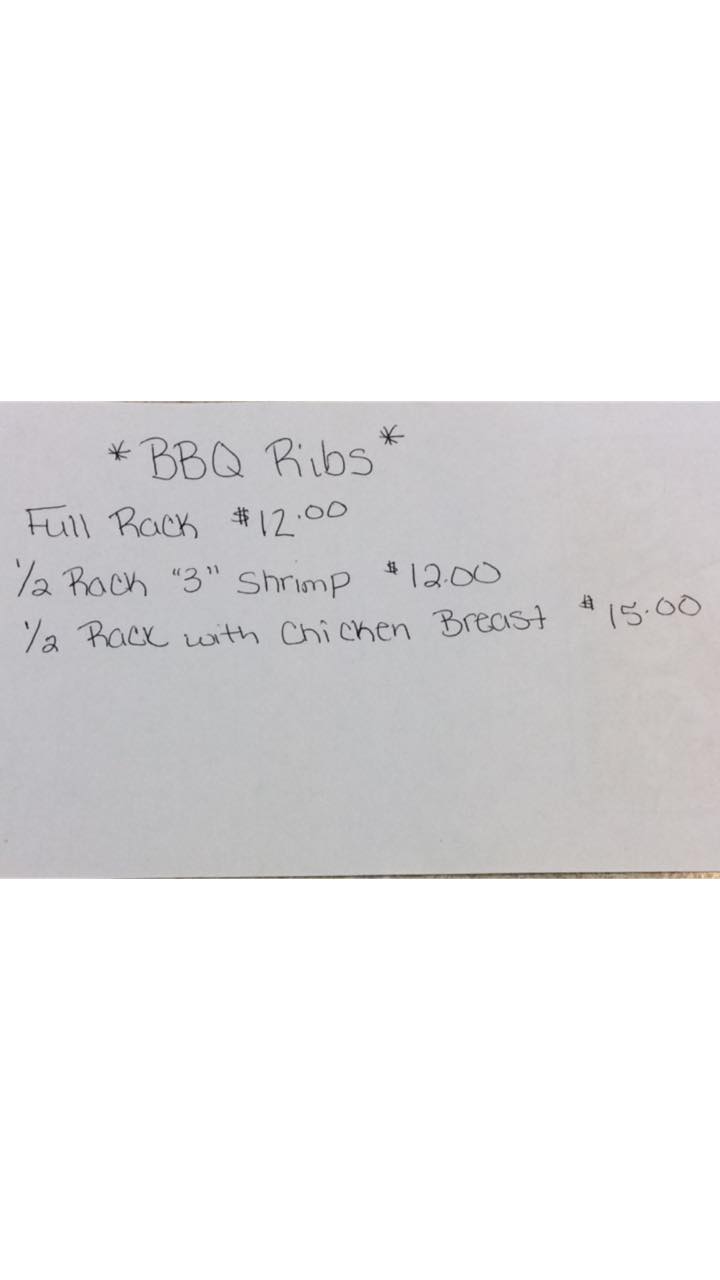 *BBQ Ribs*
Full Rack $12.00
1/2 Rack "3" Shrimp $12.00
1/2 Rack with Chicken Breast $15.00